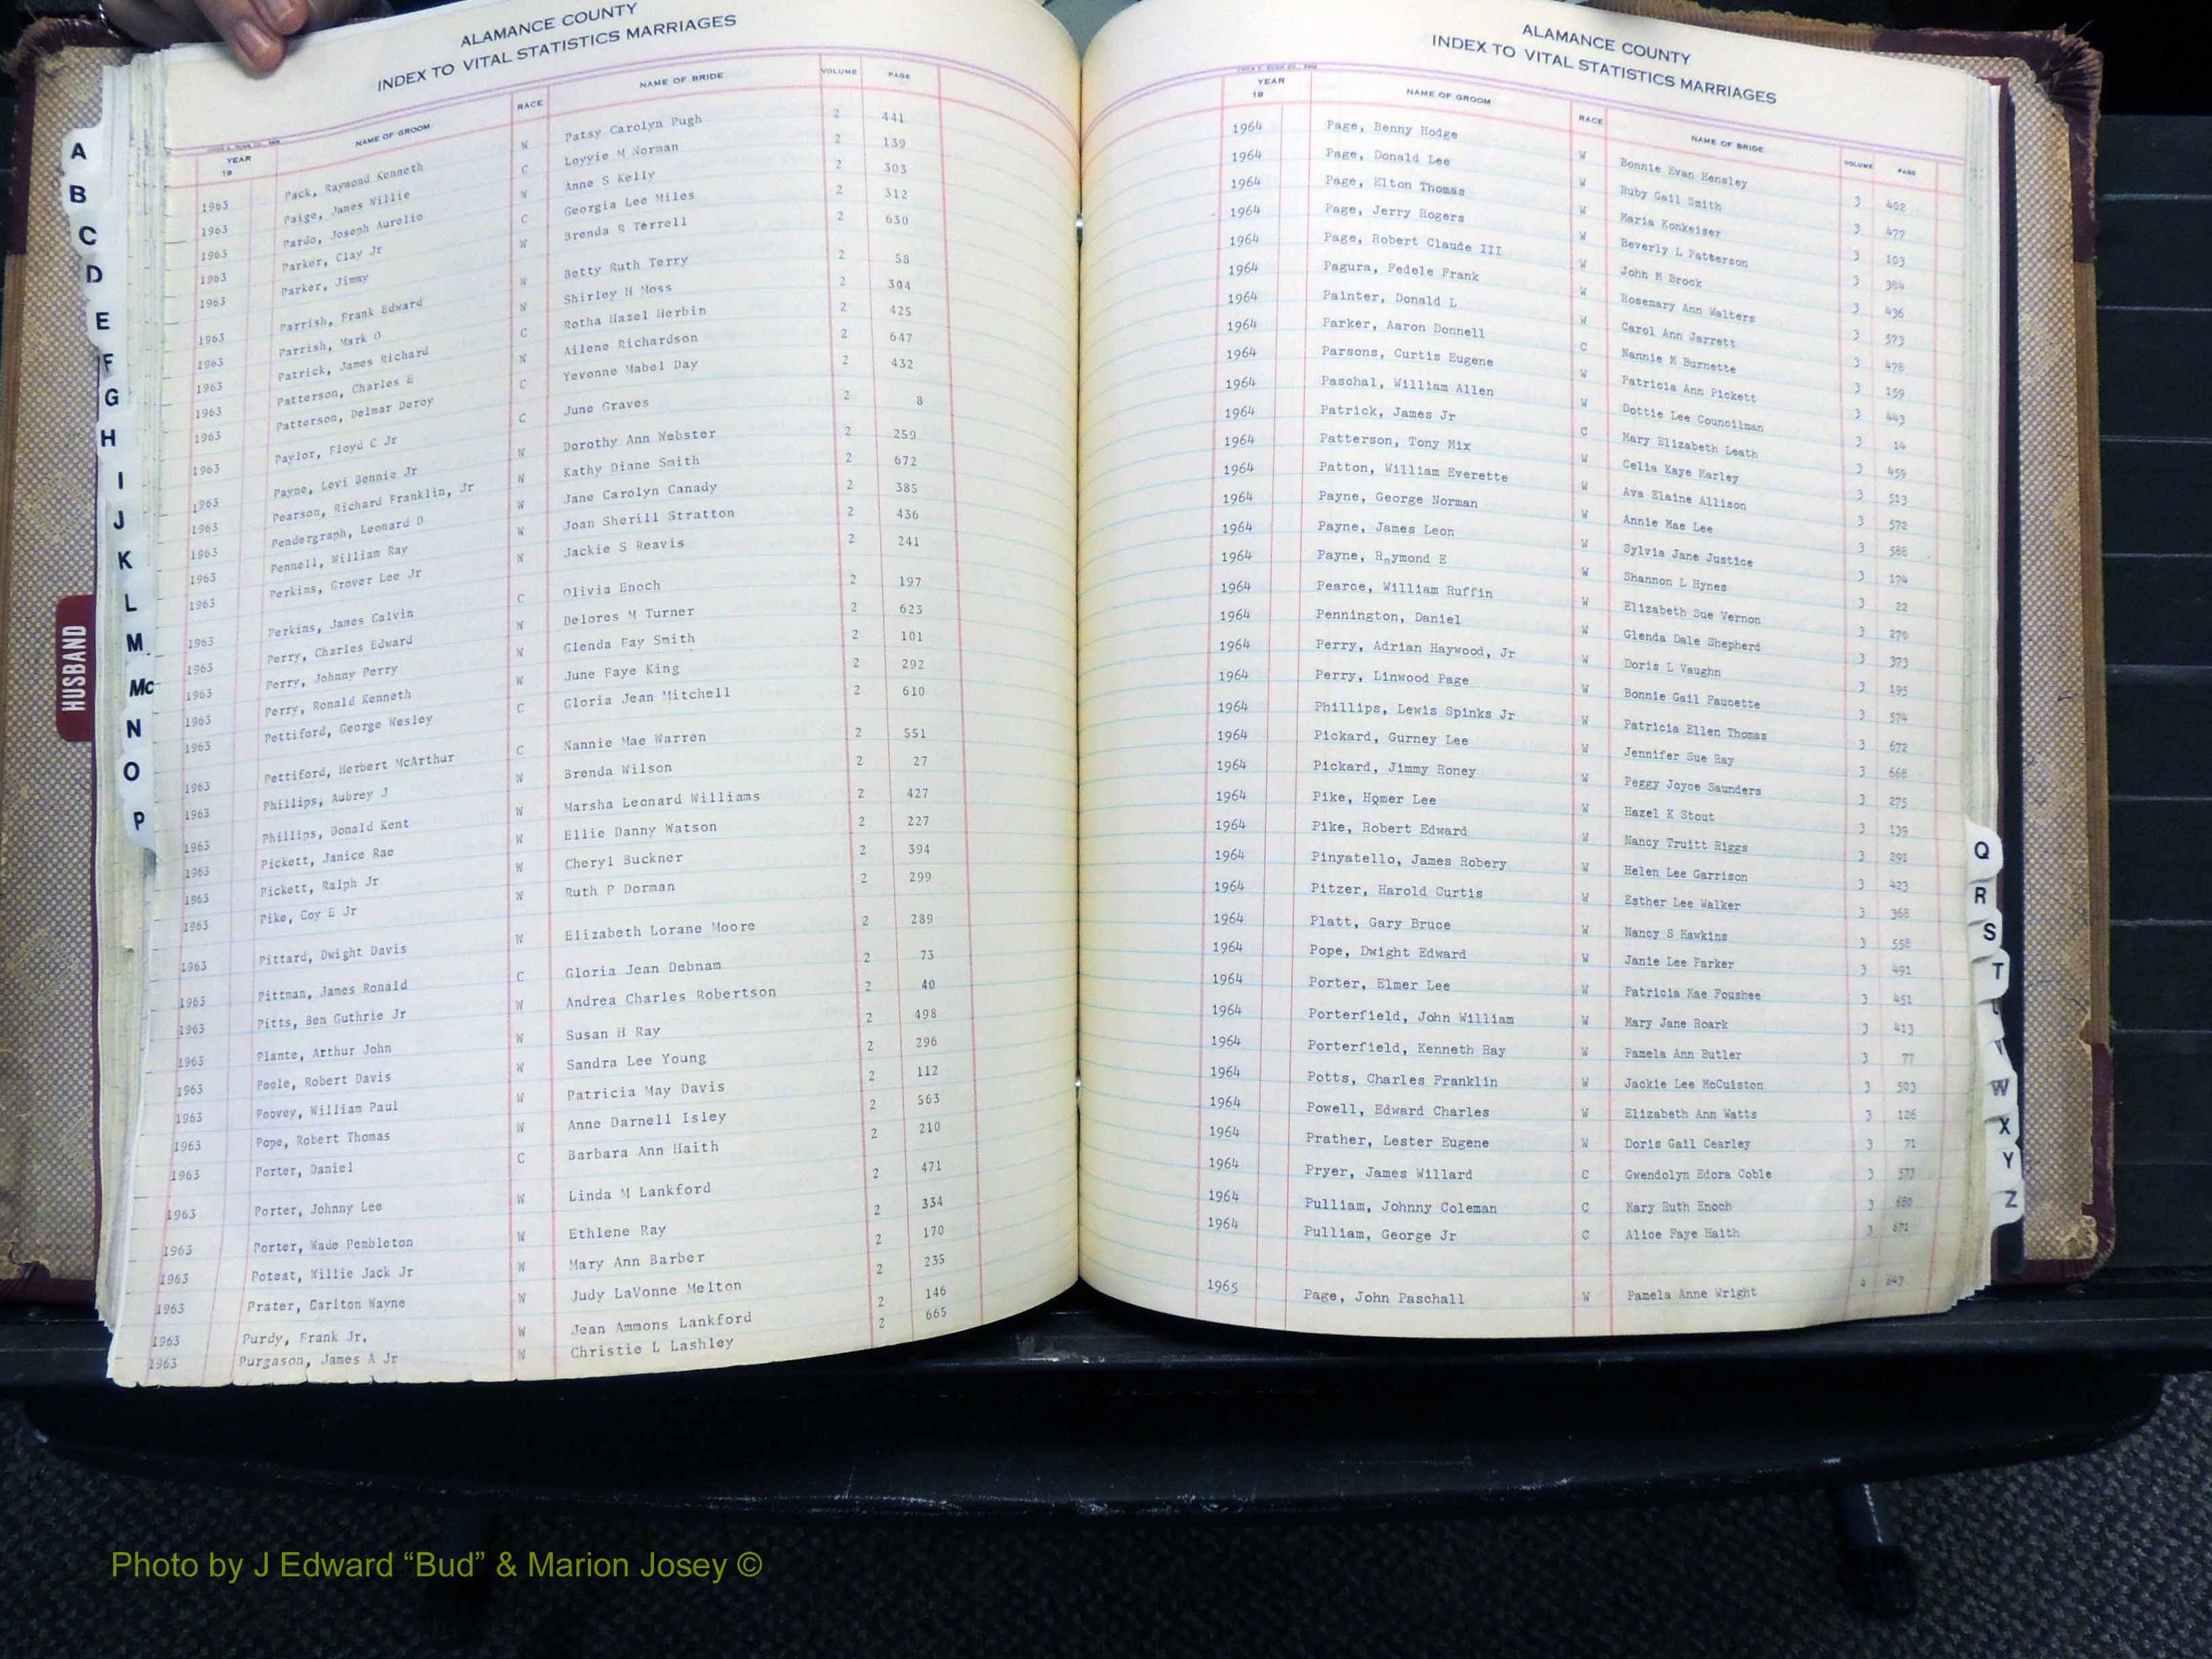 ALAMANCE COUNTY
INDEX TO VITAL STATISTICS MARRIAGES
YEAR 19 NAME OF GROOM RACE NAME OF BRIDE VOLUME PAGE
1963 Pack, Raymond Kenneth W Patsy Carolyn Pugh 2 441
1963 Paige, James Willie C Lovvie M Norman 2 139
1963 Pardo, Joseph Aurelio W Anne S Kelly 2 303
1963 Parker, Clay Jr C Georgia Lee Miles 2 312
1963 Parker, Jimmy W Brenda R Terrell 2 630
1963 Parrish, Frank Edward W Betty Ruth Terry 2 58
1963 Parrish, Mark O W Shirley H Moss 2 304
1963 Patrick, James Richard C Rotha Hazel Herbin 2 425
1963 Patterson, Charles E W Ailene Richardson 2 647
1963 Patterson, Delmar Deroy C Yevonne Mabel Day 2 432
1963 Paylor, Floyd C Jr C June Graves 2 8
1963 Payne, Levi Bennie Jr W Dorothy Ann Webster 2 259
1963 Pearson, Richard Franklin, Jr W Kathy Diane Smith 2 672
1963 Pendergraph, Leonard D W Jane Carolyn Canady 2 385
1963 Pennell, William Ray W Joan Sherill Stratton 2 436
1963 Perkins, Grover Lee Jr W Jackie S Reavis 2 241
1963 Perkins, James Calvin C Olivia Enoch 2 197
1963 Perry, Charles Edward W Delores M Turner 2 623
1963 Perry, Johnny Perry W Glenda Fay Smith 2 101
1963 Perry, Ronald Kenneth W June Faye King 2 292
1963 Pettiford, George Wesley C Gloria Jean Mitchell 2 610
1963 Pettiford, Herbert McArthur C Nannie Mae Warren 2 551
1963 Phillips, Aubrey J W Brenda Wilson 2 27
1963 Phillips, Donald Kent W Marsha Leonard Williams 2 427
1963 Pickett, Janice Rae W Ellie Danny Watson 2 227
1963 Pickett, Ralph Jr W Cheryl Buckner 2 394
1963 Pike, Coy E Jr W Ruth P Dorman 2 299
1963 Pittard, Dwight Davis W Elizabeth Lorane Moore 2 289
1963 Pittman, James Ronald C Gloria Jean Debnam 2 73
1963 Pitts, Ben Guthrie Jr W Andrea Charles Robertson 2 40
1963 Plante, Arthur John W Susan H Ray 2 498
1963 Poole, Robert Davis W Sandra Lee Young 2 296
1963 Poovey, William Paul W Patricia May Davis 2 112
1963 Pope, Robert Thomas W Anne Darnell Isley 2 563
1963 Porter, Daniel C Barbara Ann Haith 2 210
1963 Porter, Johnny Lee W Linda M Lankford 2 471
1963 Porter, Wade Pembleton W Ethlene Ray 2 334
1963 Poteat, Willie Jack Jr W Mary Ann Barber 2 170
1963 Prater, Carlton Wayne W Judy LaVonne Melton 2 235
1963 Purdy, Frank Jr, W Jean Ammons Lankford 2 146
1963 Purgason, James A Jr W Christie L Lashley 2 665
A
B
C
D
E
F
G
H
I
J
K
L
M
Mc
N
O
P
HUSBAND
ALAMANCE COUNTY
INDEX TO VITAL STATISTICS MARRIAGES
YEAR 19 NAME OF GROOM RACE NAME OF BRIDE VOLUME PAGE
1964 Page, Benny Hodge W Bonnie Evan Hensley 3 402
1964 Page, Donald Lee W Ruby Gail Smith 3 477
1964 Page, Elton Thomas W Maria Konkeiser 3 103
1964 Page, Jerry Rogers W Beverly L Patterson 3 384
1964 Page, Robert Claude III W John M Brock 3 436
1964 Pagura, Fedele Frank W Rosemary Ann Walters 3 573
1964 Painter, Donald L W Carol Ann Jarrett 3 478
1964 Parker, Aaron Donnell C Nannie M Burnette 3 159
1964 Parsons, Curtis Eugene W Patricia Ann Pickett 3 443
1964 Paschal, William Allen W Dottie Lee Councilman 3 14
1964 Patrick, James Jr C Mary Elizabeth Leath 3 459
1964 Patterson, Tony Mix W Celia Kaye Marley 3 513
1964 Patton, William Everette W Ava Elaine Allison 3 572
1964 Payne, George Norman W Annie Mae Lee 3 588
1964 Payne, James Leon W Sylvia Jane Justice 3 174
1964 Payne, Raymond E W Shannon L Hynes 3 22
1964 Pearce, William Ruffin W Elizabeth Sue Vernon 3 270
1964 Pennington, Daniel W Glenda Dale Shepherd 3 373
1964 Perry, Adrian Haywood, Jr W Doris L Vaughn 3 195
1964 Perry, Linwood Page W Bonnie Gail Faucette 3 574
1964 Phillips, Lewis Spinks Jr W Patricia Ellen Thomas 3 672
1964 Pickard, Gurney Lee W Jennifer Sue Ray 3 668
1964 Pickard, Jimmy Roney W Peggy Joyce Saunders 3 275
1964 Pike, Homer Lee W Hazel K Stout 3 139
1964 Pike, Robert Edward W Nancy Truitt Riggs 3 291
1964 Pinyatello, James Robery W Helen Lee Garrison 3 423
1964 Pitzer, Harold Curtis W Esther Lee Walker 3 368
1964 Platt, Gary Bruce W Nancy S Hawkins 3 558
1964 Pope, Dwight Edward W Janie Lee Parker 3 491
1964 Porter, Elmer Lee W Patricia Mae Foushee 3 451
1964 Porterfield, John William W Mary Jane Roark 3 413
1964 Porterfield, Kenneth Ray W Pamela Ann Butler 3 77
1964 Potts, Charles Franklin W Jackie Lee McCuiston 3 503
1964 Powell, Edward Charles W Elizabeth Ann Watts 3 126
1964 Prather, Lester Eugene W Doris Gail Cearley 3 71
1964 Pryer, James Willard C Gwendolyn Edora Coble 3 573
1964 Pulliam, Johnny Coleman C Mary Ruth Enoch 3 680
1964 Pulliam, George Jr C Alice Faye Haith 3 671
1965 Page, John Paschall W Pamela Anne Wright 4
Q
R
S
T
W
X
Y
Z
Photo by J Edward “Bud” & Marion Josey ©